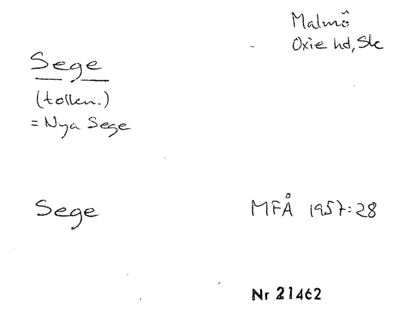 Malmö
Oxie hd, Sk
Sege
(tolkn.)
= Nya Sege
Sege
MFÅ 1957:28
Nr 21462